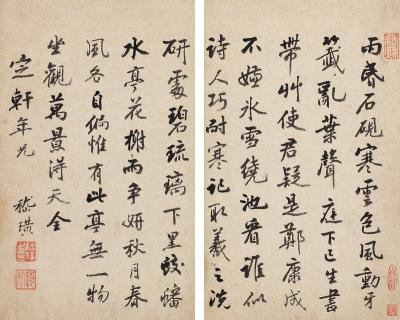 雨昏石硯寒雲色風動牙
籤亂葉聲庭下已生書
帶艸使君疑是鄭康成
不嫌冰雪繞池看誰似
詩人巧耐寒記取羲之洗
研處碧琉璃下黑蛟蟠
水亭花榭兩爭妍秋月春
風各自偏惟有此亭無一物
坐觀萬景得天全
定軒年兄
嵇璜